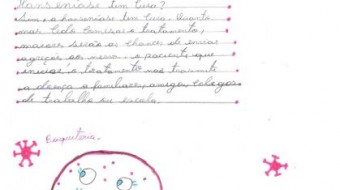 Hanseníase tem Cura?
Sim, a hanseníase tem Cura. Quanto
mais Cedo Começar o tratamento,
maiores serão as chances de evitar
ao nervo. o paciente que
iniciar o tratamento não transmite
a doença a familiares, amigos, colegas
de trabalho ou escola.
Bactéria.